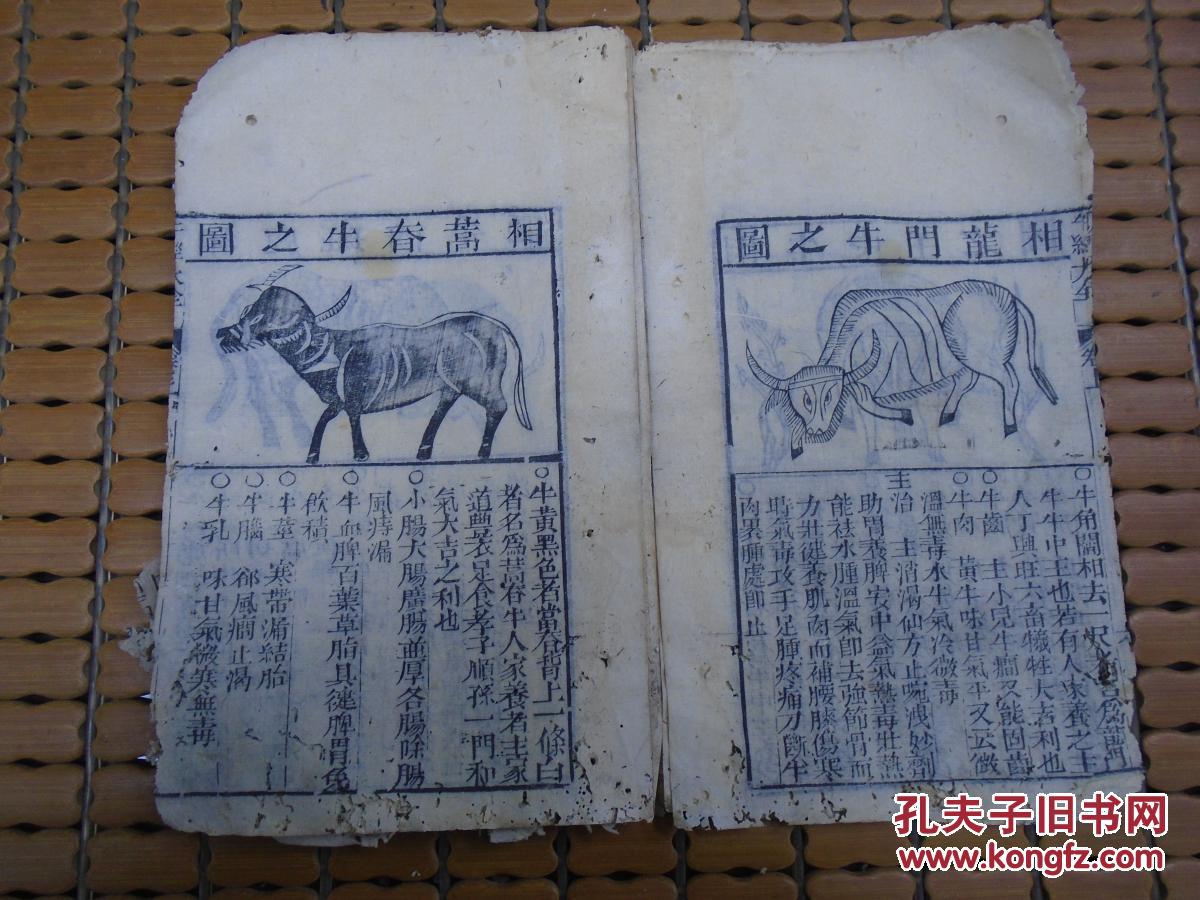 相龍門牛之圖
○牛角闊相去一尺
牛牛中王也若有人來養之主
人丁興旺六畜犧牲大吉利也
○牛齒 主小兒牛癇又能固齒
○牛肉 黃牛味甘氣平又云微
溫無毒水牛氣冷微毒
主治 主消渴仙方止啘洩妙劑
助胃養脾安中益氣
能祛水腫溫氣即去強筋骨而
力壯健養肌肉而補腰膝傷寒
時氣毒攻手足腫疼痛刀斷牛
肉裹腫處即止
相蒿脊牛之圖
○牛黃黑色者當脊背上一條白
者名為蒿脊牛人家養者主家
道豐衣足食孝子順孫一門和
氣大吉之利也
○小腸大腸廣腸並厚各腸除腸
風痔漏
○牛血脾百葉草胎具健脾胃免
飲積
○牛莖 寒帶漏結胎
○牛腦 祛風癇止渴
○牛乳 味甘氣微寒無毒
孔夫子旧书网
www.kongfz.com